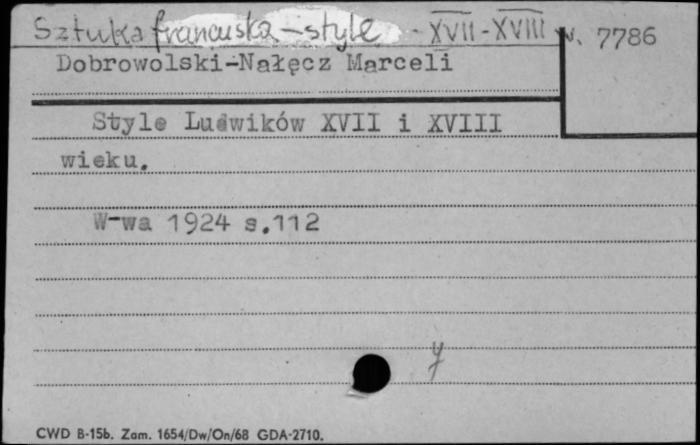 Sztuka francuska - style - XVII - XVIII w. 7786
Dobrowolski-Nałęcz Marceli
Style Ludwików XVII i XVIII
wieku.
W-wa 1924 s.112
y
CWD B-15b. Zam. 1654/Dw/On/68 GDA-2710.